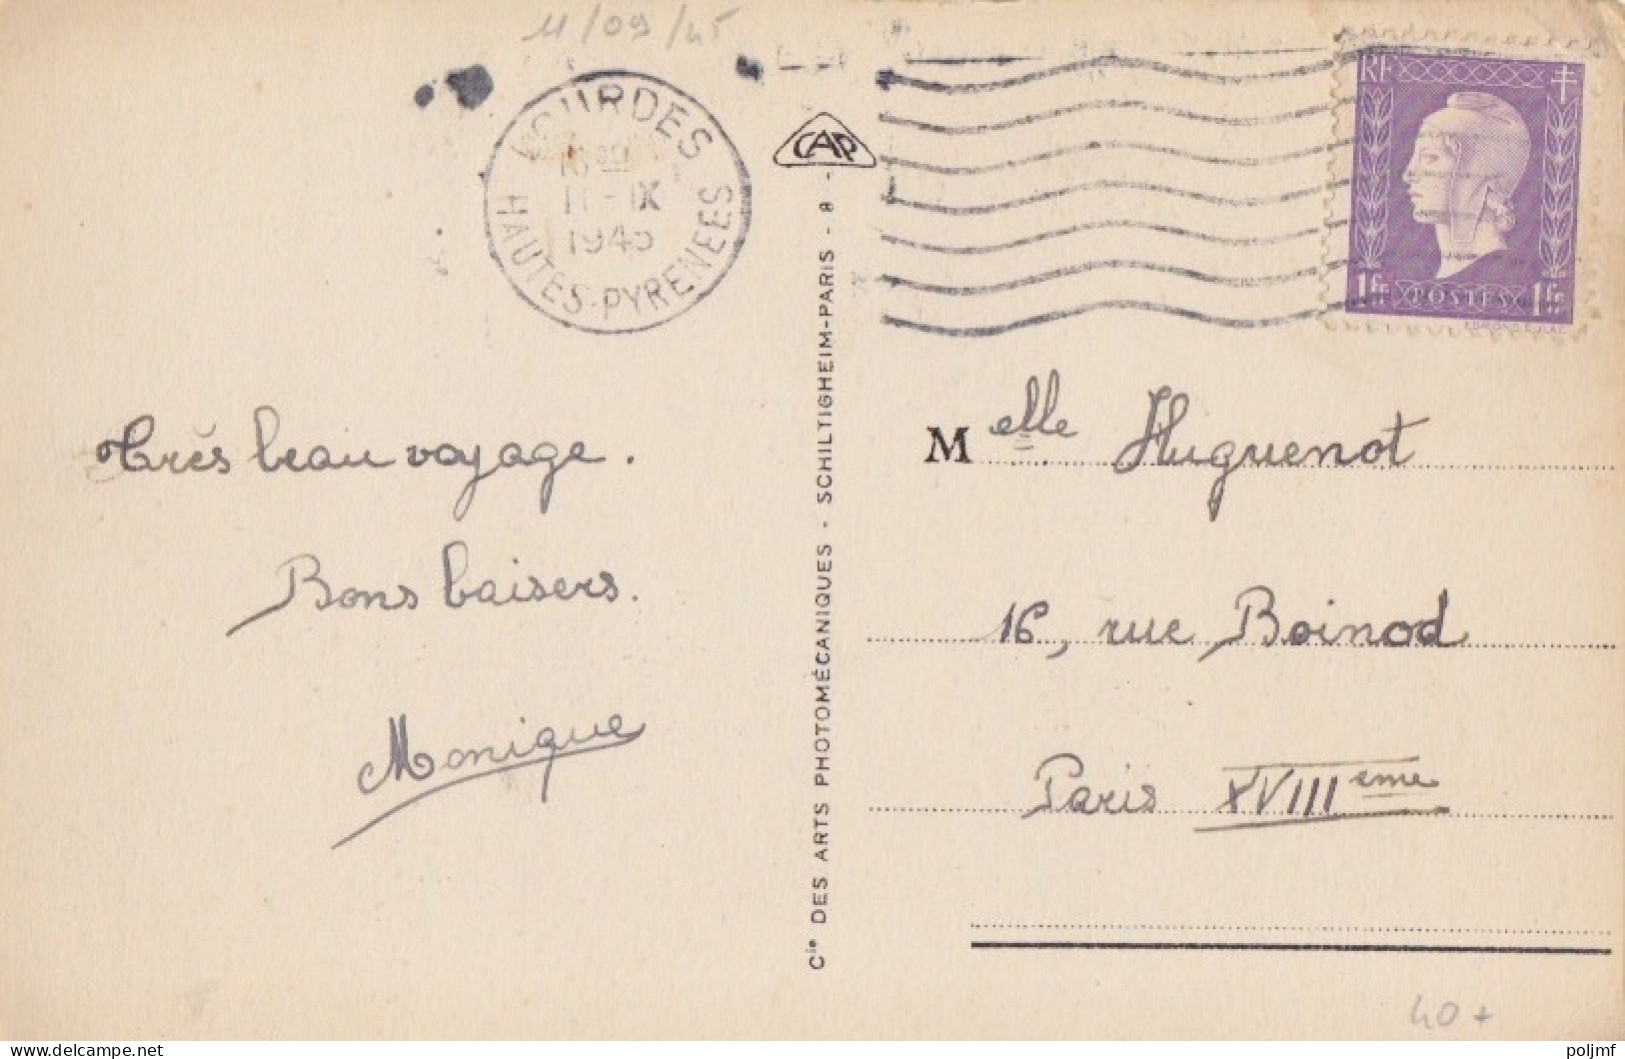 11/09/45
LOURDES
11-IX
1945
HAUTES-PYRENEES
CAP
RF
1fr POSTES 1fr
EDMOND DULAC
Très beau voyage.
Bons baisers.
Monique
Cie DES ARTS PHOTOMÉCANIQUES - SCHILTIGHEIM-PARIS - 8 -
Melle Huguenot
16, rue Boinod
Paris XVIIIeme
40+
poljmf
© www.delcampe.net